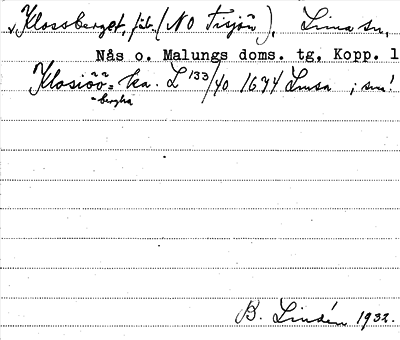 Klossberget, fäb. (NO Tisjön), Lima sn,
Nås o. Malungs doms. tg, Kopp. l
Klosiöö= ka. L 133/40 1694 Limsa ; små!
=bergha
B. Lindén 1932.